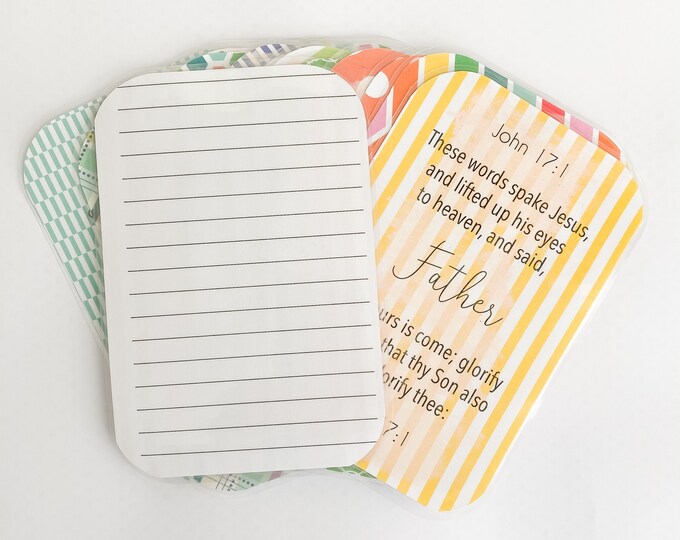 John 17:1
These words spake Jesus,
and lifted up his eyes
to heaven, and said,
Father
urs is come; glorify
that thy Son also
orify thee:
7:1